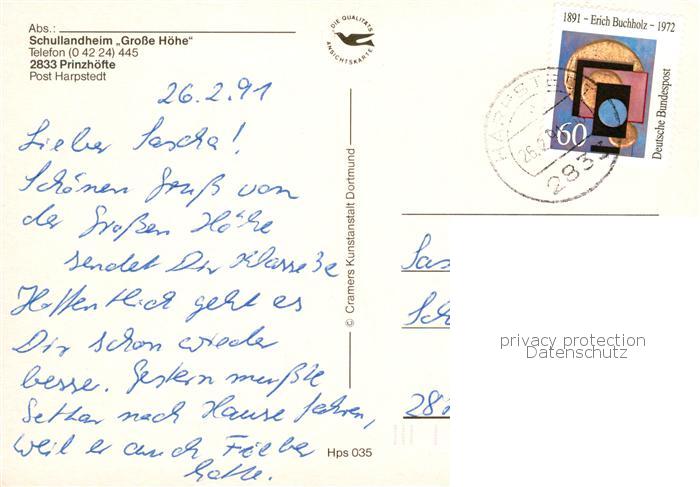 Abs.:
Schullandheim „Große Höhe"
Telefon (0 42 24) 445
2833 Prinzhöfte
Post Harpstedt
DIE QUALITÄTS
ANSICHTSKARTE
1891 - Erich Buchholz - 1972
60
Deutsche Bundespost
HARPSTEDT
26.2.91
2833
26.2.91
Lieber Sascha!
Schönen Gruß von
der Großen Höhe
sendet Dir Klasse 3c
Hoffentlich geht es
Dir schon wieder
besser. Gestern mußte
nach Hause fahren,
weil er auch Fieber
hatte.
© Cramers Kunstanstalt Dortmund
Hps 035
Sas
Sch
28
privacy protection
Datenschutz